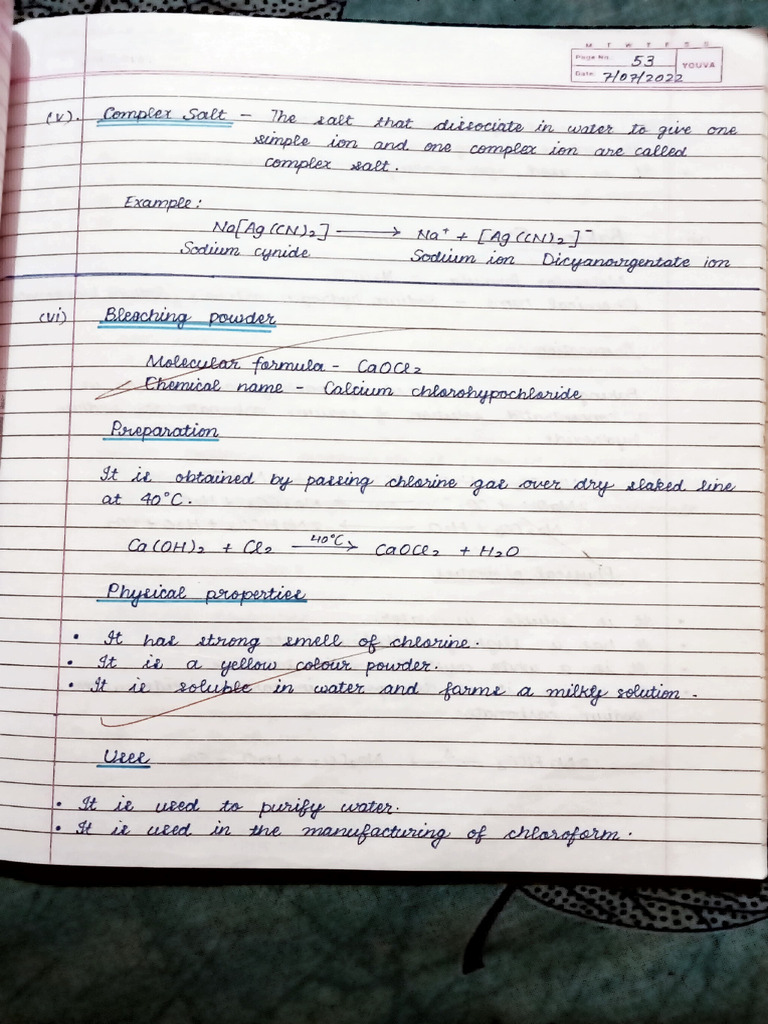 M T W T F S S
Page No.: 53
YOUVA
Date: 7/07/2022
(v). Complex Salt - The salt that dissociate in water to give one
simple ion and one complex ion are called
complex salt.
Example:
Na[Ag(CN)₂] ⟶ Na⁺ + [Ag(CN)₂]⁻
Sodium cynide Sodium ion Dicyanoargentate ion
(vi) Bleaching powder
Molecular formula - CaOCl₂
Chemical name - Calcium chlorohypochloride
Preparation
It is obtained by passing chlorine gas over dry slaked line
at 40°C.
Ca(OH)₂ + Cl₂ —40°C→ CaOCl₂ + H₂O
Physical properties
• It has strong smell of chlorine.
• It is a yellow colour powder.
• It is soluble in water and forms a milky solution.
Uses
• It is used to purify water.
• It is used in the manufacturing of chloroform.